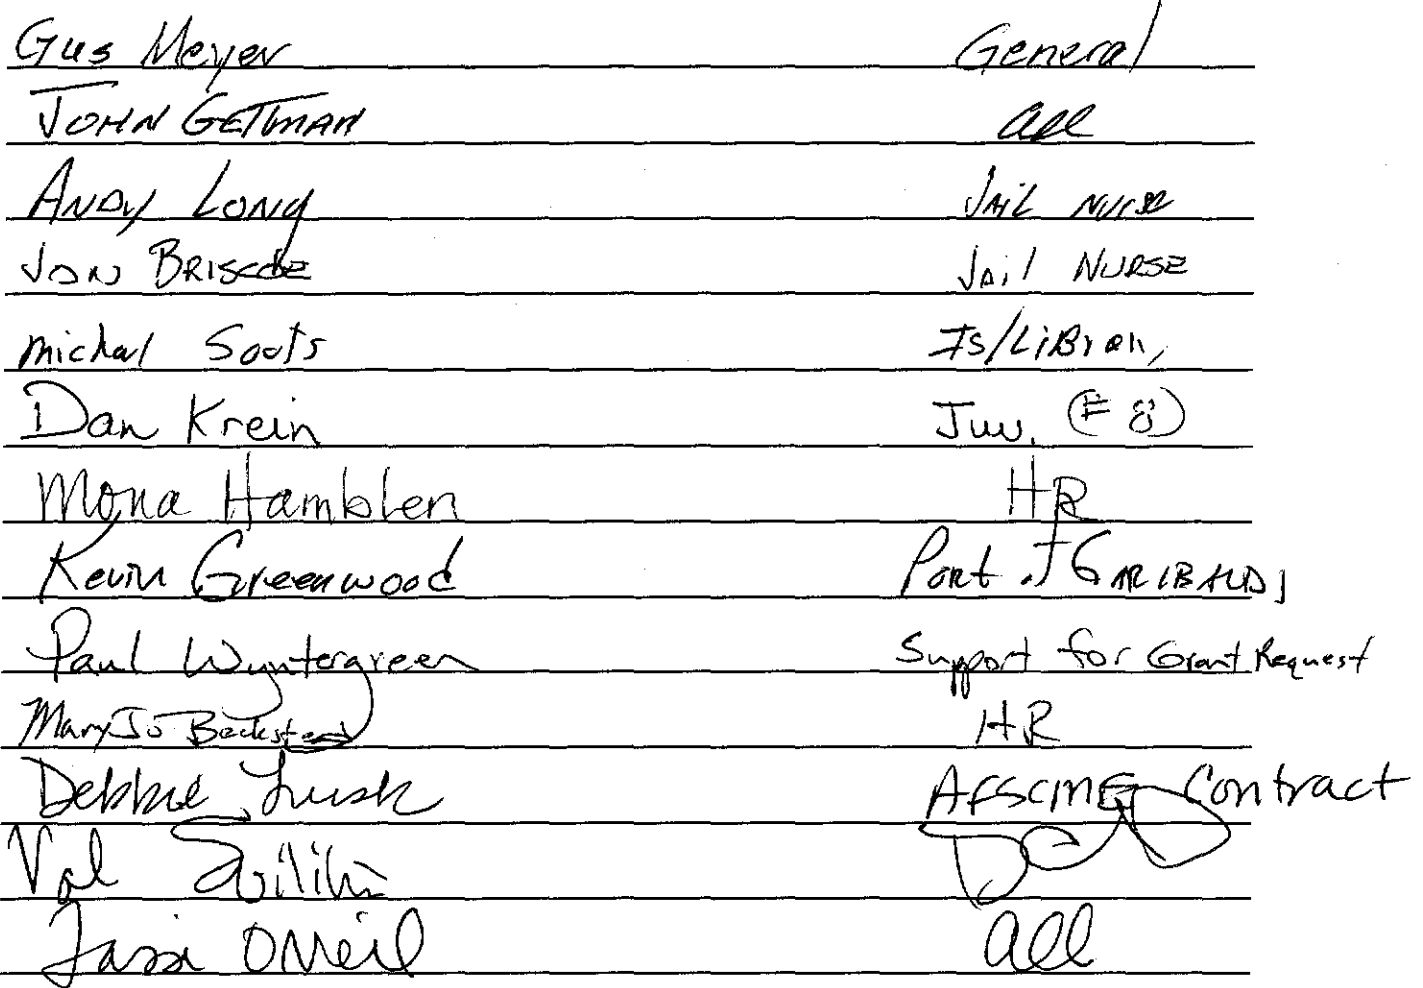 Gus Meyer General
JOHN GETTMAN all
ANDY LONG JAIL NURSE
JON BRISCOE JAil NURSE
Michal Soots IS/LiBrary
Dan Krein Juv. (# 8)
Mona Hamblen HR
Kevin Greenwood PORT of GARIBALDI
Paul Wyntergreen Support for Grant Request
Mary Jo Beckstead HR
Debbie Lusk AFSCME Contract
Val
O'Neil all